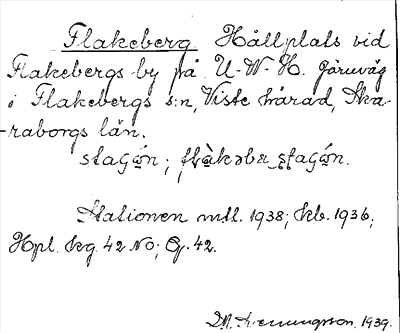 Flakeberg Hållplats vid
Flakebergs by på U.W.H. järnväg
i Flakebergs s:n, Viste härad, Ska-
raborgs län.
staGo̱n; stagón.
Stationen mtl. 1938; Kb. 1936;
Hpl. Kg. 42 NO; G. 42.
1939.